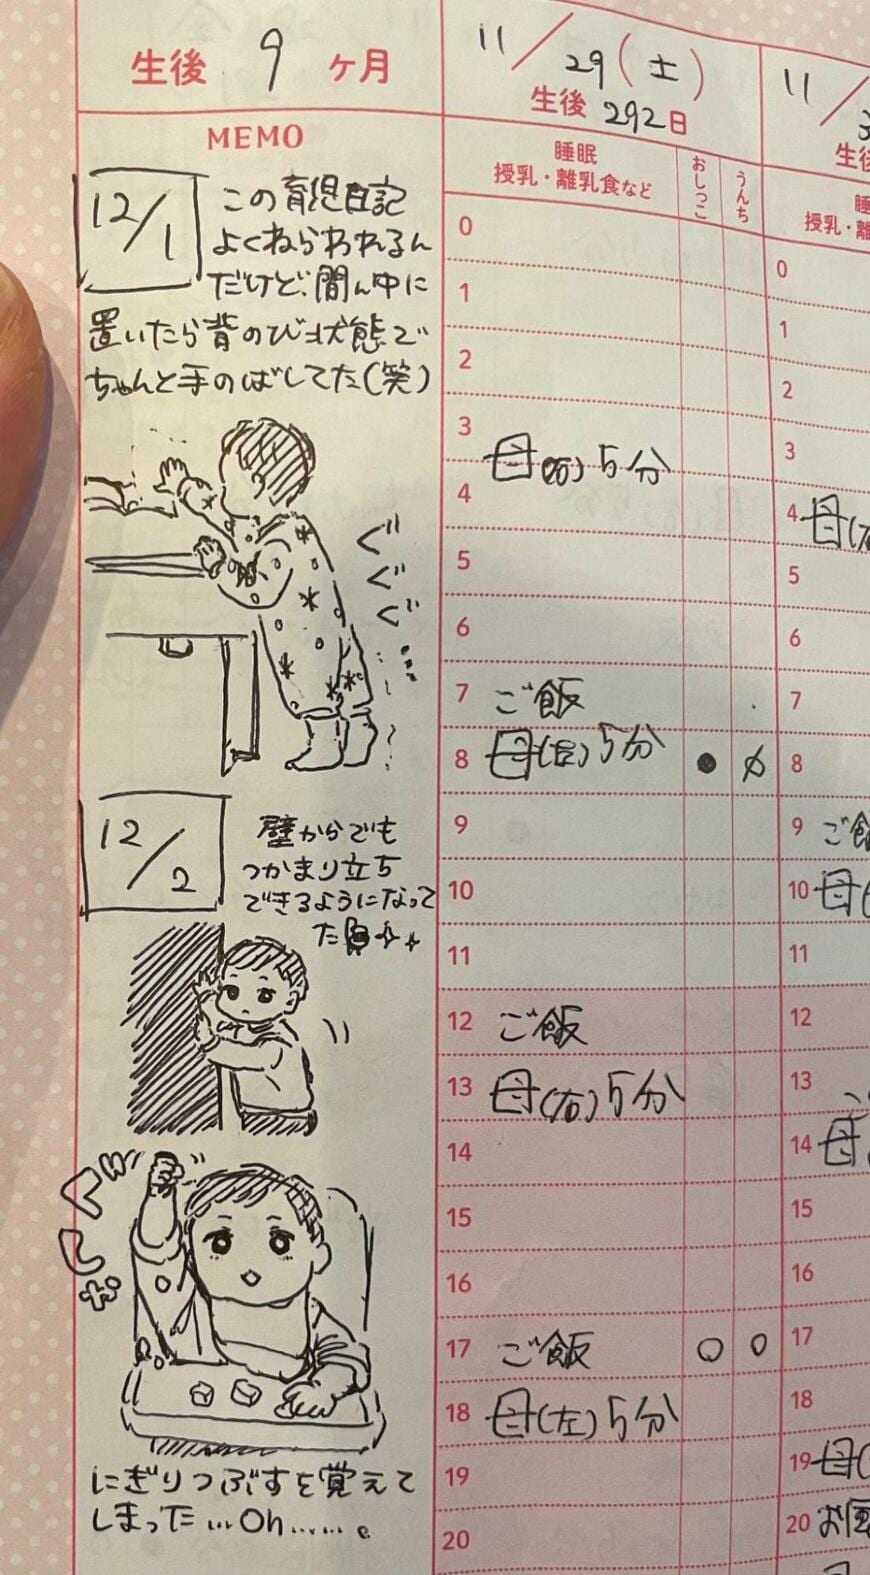 生後 9 ヶ月
MEMO
12/1
この育児日記
よくねらわれるん
だけど、間ん中に
置いたら背のび状態で
ちゃんと手のばしてた(笑)
ぐぐぐ…
12/2
壁からでも
つかまり立ち
できるようになって
た
ぐしゃ
にぎりつぶすを覚えて
しまった…Oh……。
11/29(土)
生後 292日
睡眠
授乳・離乳食など
おしっこ
うんち
0
1
2
3
母(右)5分
4
5
6
7 ご飯
8 母(右)5分
9
10
11
12 ご飯
13 母(右)5分
14
15
16
17 ご飯
18 母(左)5分
19
20
11/
生後
授乳・離
0
1
2
3
4 母
5
6
7
8
9 ご飯
10 母
11
12
13
14 母
15
16
17
18
19 母
20